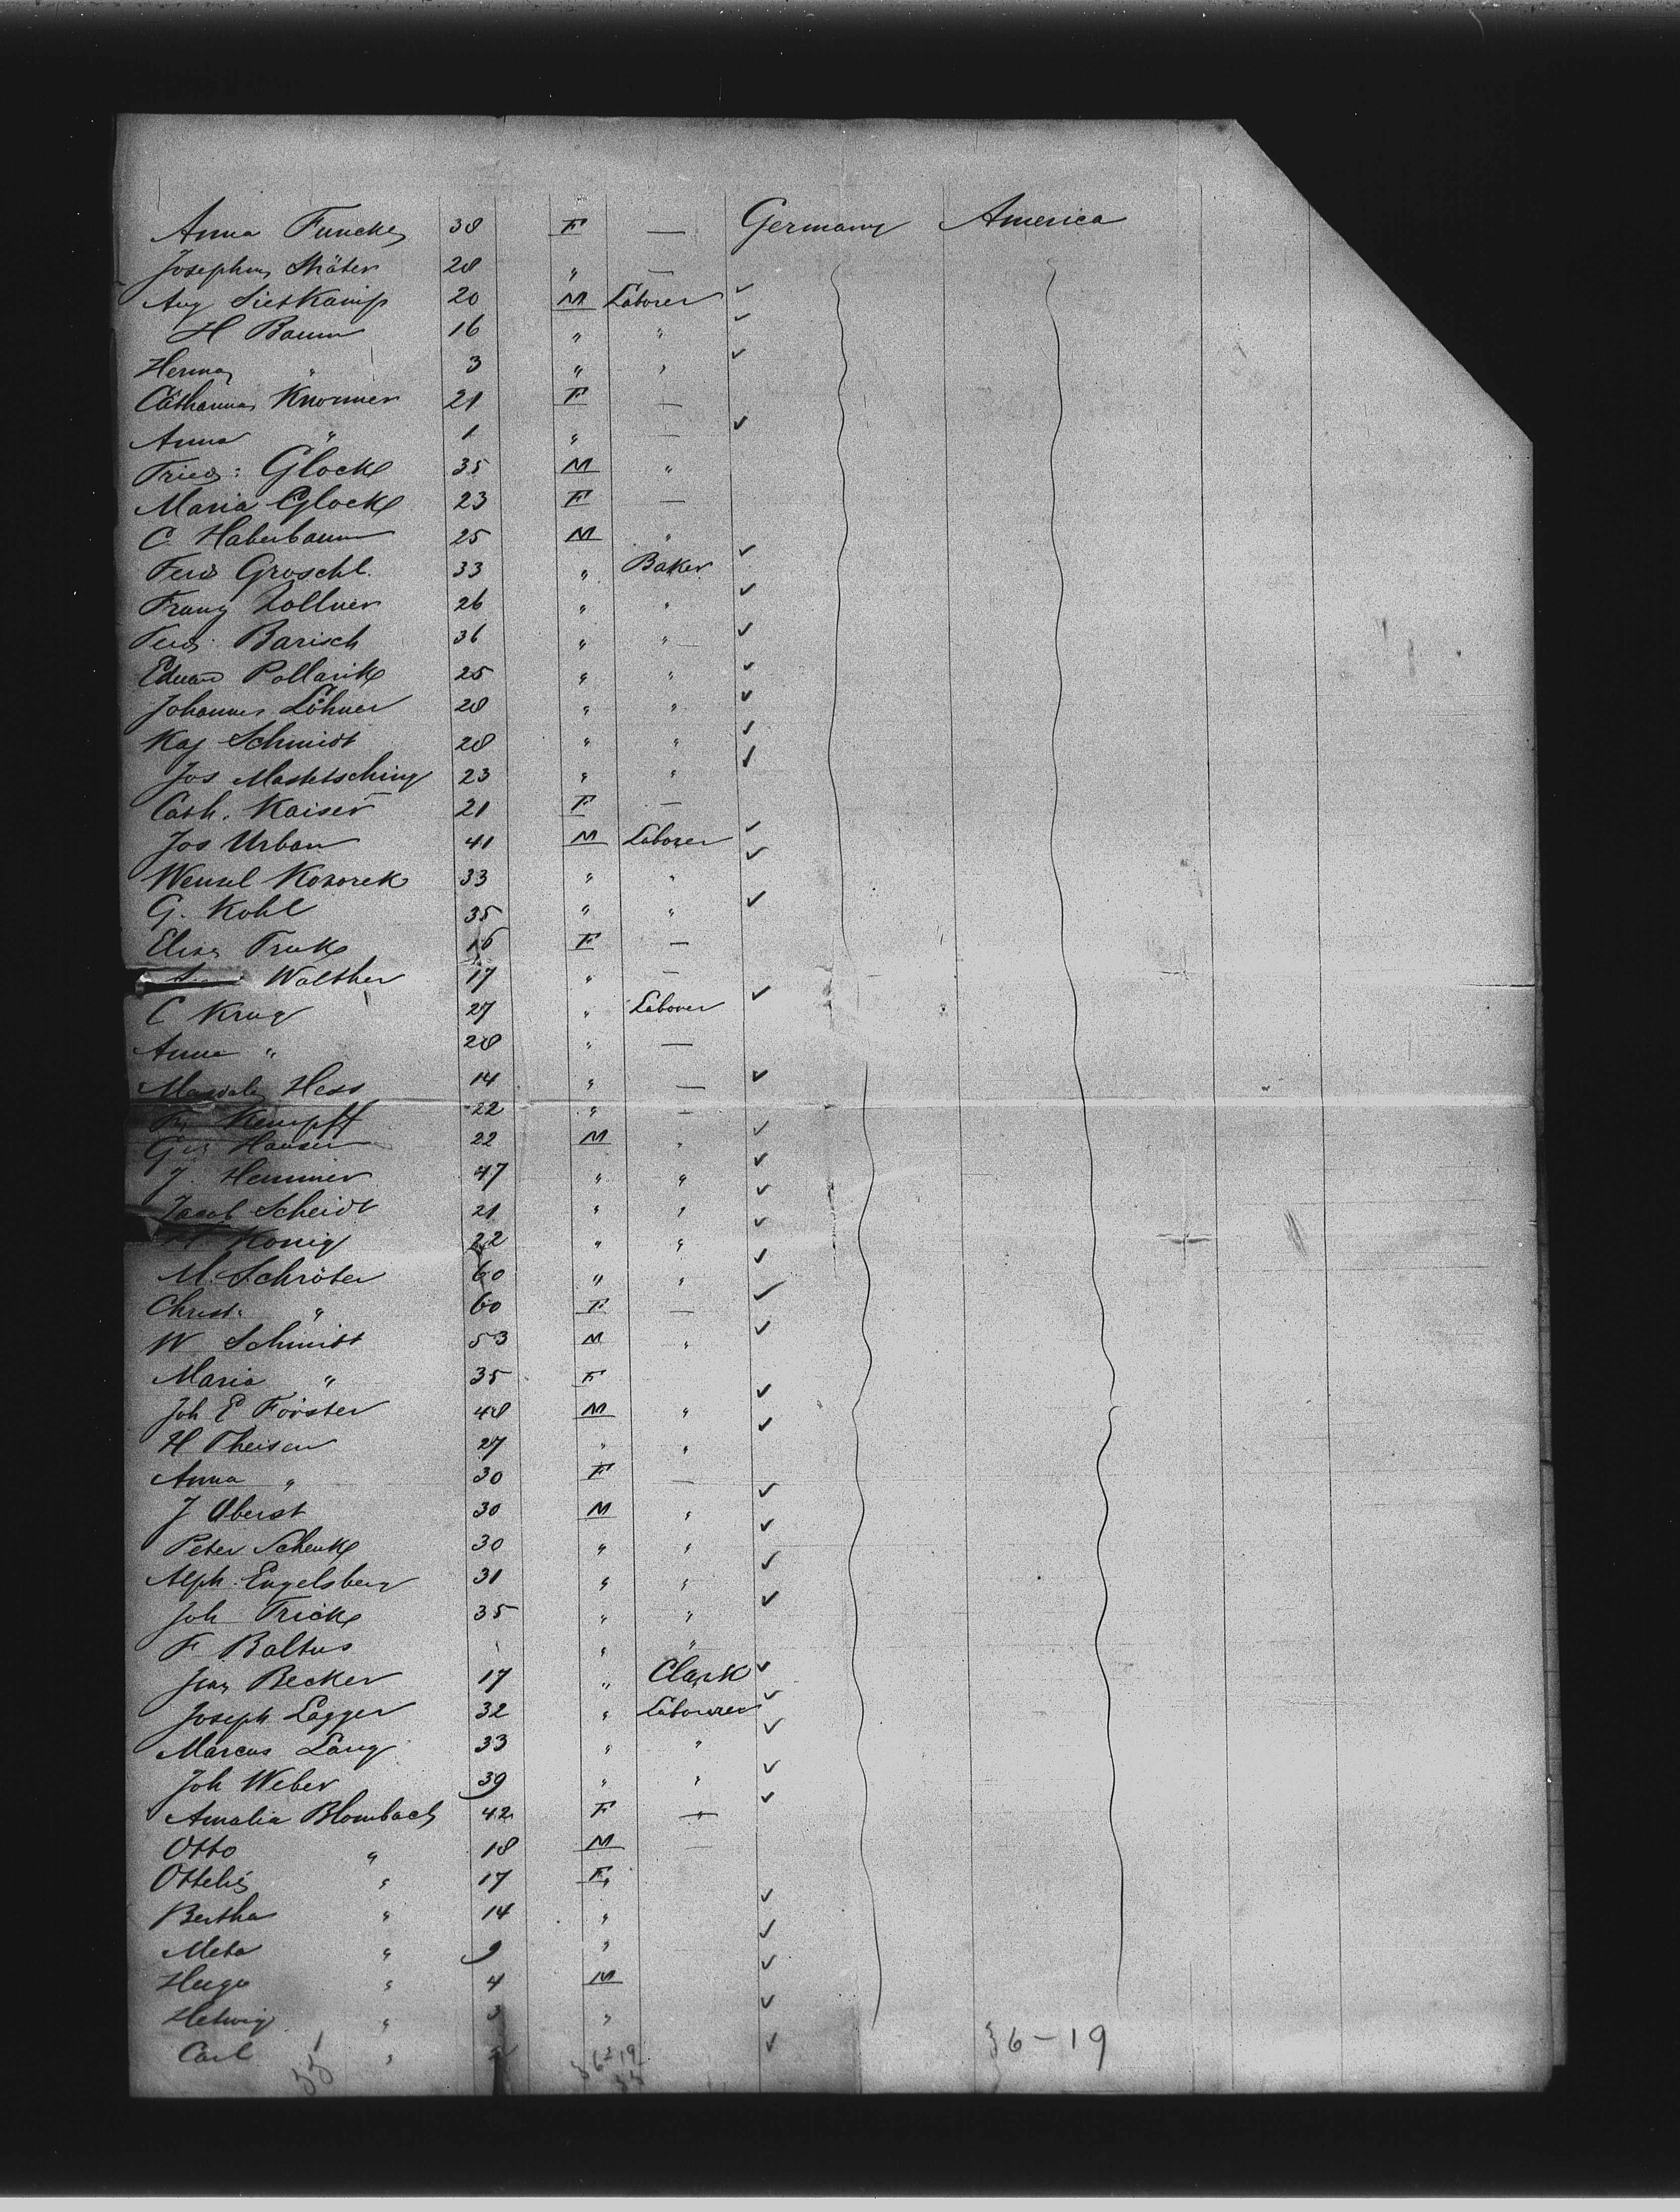 Anna Funcke 38 F — Germany America
Josephine Sträter 28 " —
Aug Sietkamp 20 M Laborer ✓
H Baum 16 " " ✓
Herman " 3 " " ✓
Catharina Knormer 21 F —
Anna " 1 " — ✓
Fried: Glock 35 M "
Maria Glock 23 F —
C. Haberbaum 25 M "
Ferd Groschl. 33 " Baker ✓
Franz Zollner 26 " " ✓
Ferd. Barisch 36 " " ✓
Eduard Pollarik 25 " " ✓
Johannes Löhner 28 " " ✓
Kaj Schmidt 28 " " ✓
Jos 23 " " ✓
Cath. Kaiser 21 F —
Jos Urban 41 M Laborer ✓
Wenzel Kozorek 33 " " ✓
G. Kohl 35 " " ✓
Elise 16 F —
Walther 17 " —
C Krug 27 " Laborer ✓
Anna " 28 " —
Magdale Hess 14 " — ✓
Kempff 22 " —
Hansen 22 M " ✓
J. Hemmer 47 " " ✓
Jacob Scheidt 21 " " ✓
König 22 " " ✓
M. Schröter 60 " " ✓
Christ: " 60 F — ✓
W Schmidt 53 M " ✓
Maria " 35 F
Joh E Förster 48 M " ✓
H Theisen 27 " " ✓
Anna " 30 F —
J Oberst 30 M " ✓
Peter Schenk 30 " " ✓
Alph. Engelsberg 31 " " ✓
Joh Frick 35 " " ✓
F Baltus " "
Jean Becker 17 " Clark ✓
Joseph Lagger 32 " Labourer ✓
Marcus Lang 33 " " ✓
Joh Weber 39 " " ✓
Amalia Blombach 42 F — ✓
Otto " 18 M —
Ottelie " 17 F
Bertha " 14 " ✓
Meta " 9 " ✓
Hugo " 4 M ✓
Hetwig " 3 " ✓
Carl " 2 ✓
36-19